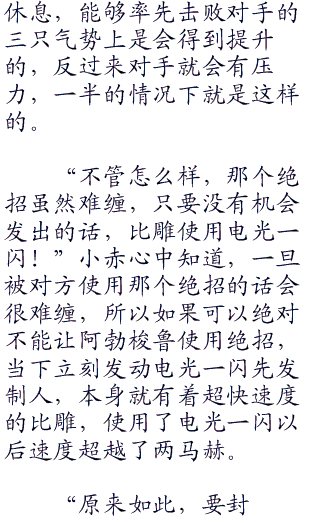 休息，能够率先击败对手的
三只气势上是会得到提升
的，反过来对手就会有压
力，一半的情况下就是这样
的。
“不管怎么样，那个绝
招虽然难缠，只要没有机会
发出的话，比雕使用电光一
闪！”小赤心中知道，一旦
被对方使用那个绝招的话会
很难缠，所以如果可以绝对
不能让阿勃梭鲁使用绝招，
当下立刻发动电光一闪先发
制人，本身就有着超快速度
的比雕，使用了电光一闪以
后速度超越了两马赫。
“原来如此，要封